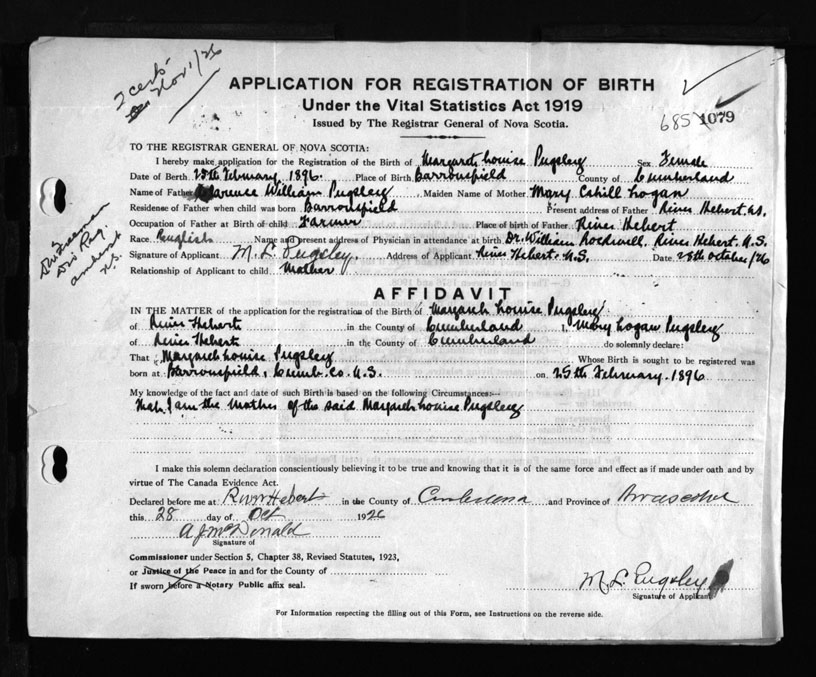 2 certs
Nov 1/26
APPLICATION FOR REGISTRATION OF BIRTH
Under the Vital Statistics Act 1919
Issued by The Registrar General of Nova Scotia.
685
1079
TO THE REGISTRAR GENERAL OF NOVA SCOTIA:
I hereby make application for the Registration of the Birth of Margaret Louise Pugsley Sex Female
Date of Birth 25th February 1896. Place of Birth Barronsfield County of Cumberland
Name of Father Clarence William Pugsley Maiden Name of Mother Mary Cahill Logan
Residense of Father when child was born Barronsfield Present address of Father River Hebert. N.S.
Occupation of Father at Birth of child Farmer Place of birth of Father River Hebert
Race English Name and present address of Physician in attendance at birth Dr. William Rockwell, River Hebert. N.S.
Signature of Applicant M. L. Pugsley. Address of Applicant River Hebert. N.S. Date 28th October/26
Relationship of Applicant to child Mother
Dr Freeman
Div Reg.
Amherst
N.S.
AFFIDAVIT
IN THE MATTER of the application for the registration of the Birth of Margaret Louise Pugsley
of River Hebert in the County of Cumberland I, Mary Logan Pugsley
of River Hebert in the County of Cumberland do solemnly declare:
That Margaret Louise Pugsley Whose Birth is sought to be registered was
born at Barronsfield, Cumb. Co. N.S. on 25th February. 1896
My knowledge of the fact and date of such Birth is based on the following Circumstances:—
That I am the Mother of the said Margaret Louise Pugsley
I make this solemn declaration conscientiously believing it to be true and knowing that it is of the same force and effect as if made under oath and by
virtue of The Canada Evidence Act.
Declared before me at River Hebert in the County of Cumberland and Province of Nova Scotia
this 28 day of Oct 1926
A J McDonald
Signature of
Commissioner under Section 5, Chapter 38, Revised Statutes, 1923,
or Justice of the Peace in and for the County of
If sworn before a Notary Public affix seal.
M. L. Pugsley
Signature of Applicant
For Information respecting the filling out of this Form, see Instructions on the reverse side.